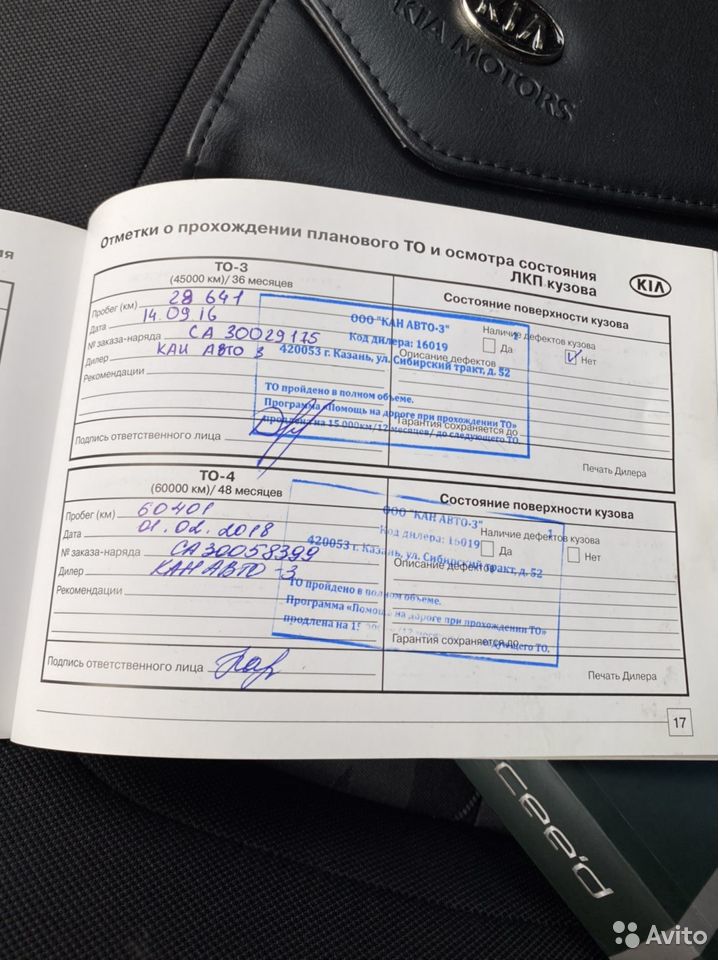 KIA
KIA MOTORS
ия
Отметки о прохождении планового ТО и осмотра состояния
ЛКП кузова
KIA
ТО-3
(45000 км)/ 36 месяцев
Состояние поверхности кузова
Пробег (км) 28 641
Дата 14.09.16
№ заказа-наряда СА 30029175
Дилер КАН АВТО 3
Рекомендации
Наличие дефектов кузова
Да
Нет
Описание дефектов
Гарантия сохраняется до
ООО "КАН АВТО-3"
Код дилера: 16019
420053 г. Казань, ул. Сибирский тракт, д. 52
ТО пройдено в полном объеме.
Программа «Помощь на дороге при прохождении ТО»
продлена на 15 000км/12 месяцев/ до следующего ТО.
Подпись ответственного лица
Печать Дилера
ТО-4
(60000 км)/ 48 месяцев
Состояние поверхности кузова
Пробег (км) 60401
Дата 01.02.2018
№ заказа-наряда СА30058399
Дилер КАН АВТО-3
Рекомендации
Наличие дефектов кузова
Да
Нет
Описание дефектов
Гарантия сохраняется до
ООО "КАН АВТО-3"
Код дилера: 16019
420053 г. Казань, ул. Сибирский тракт, д. 52
ТО пройдено в полном объеме.
Программа «Помощь на дороге при прохождении ТО»
продлена на ТО.
Подпись ответственного лица
Печать Дилера
17
cee'd
Avito